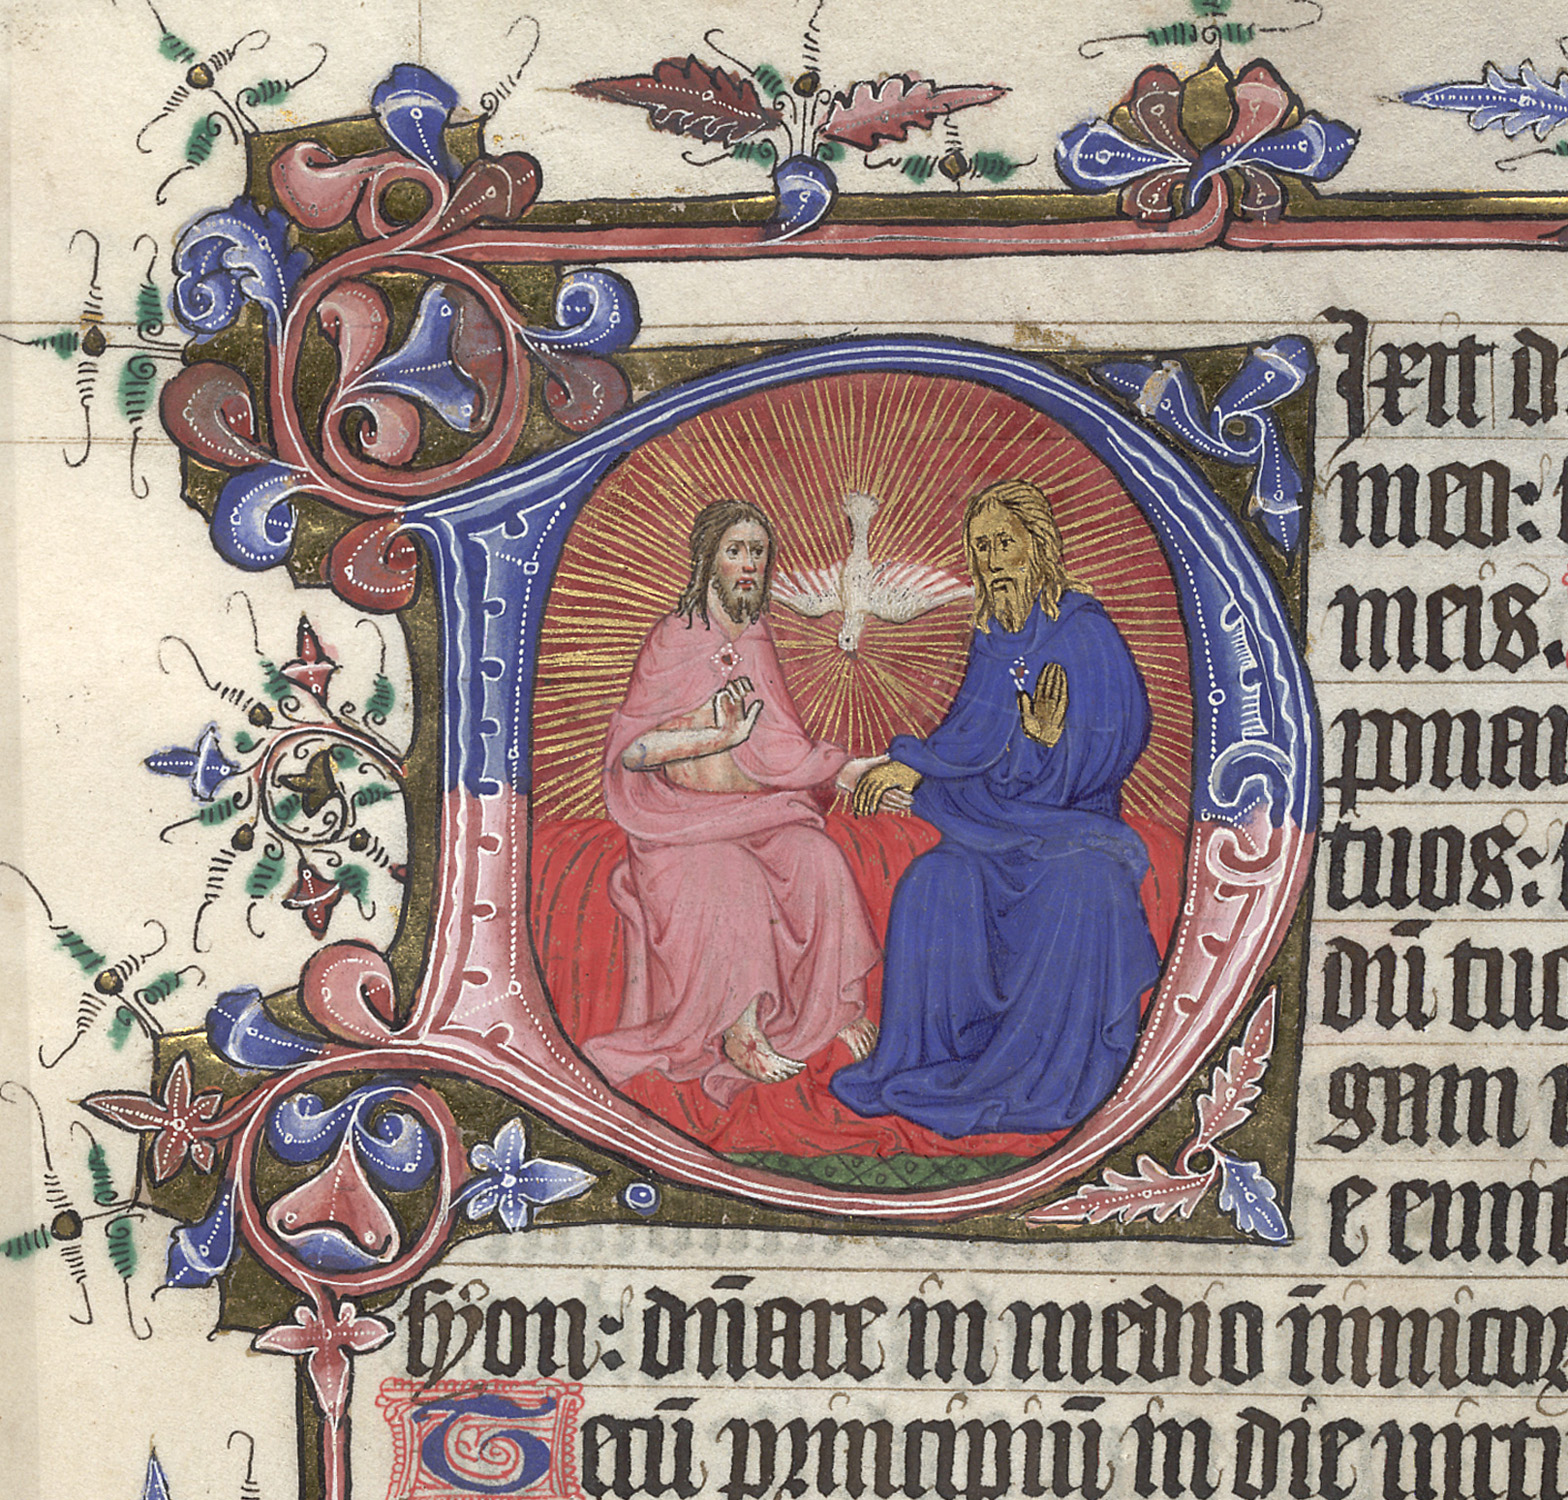 Dixit d
meo:
meis.
ponam
tuos:
dnī tuo
gam
e reuir
syon: dn̄are in medio inimicoꝝ
Tecū principiū in die uirtu